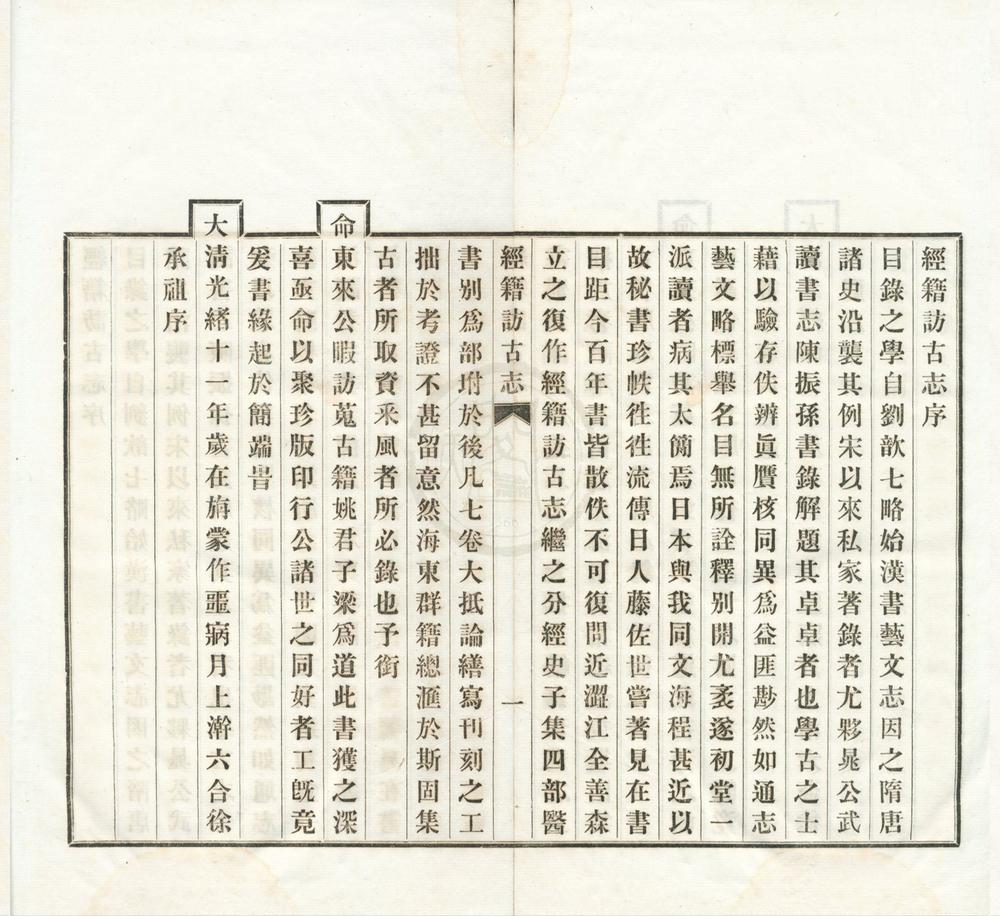 經籍訪古志序
目錄之學自劉歆七略始漢書藝文志因之隋唐
諸史沿襲其例宋以來私家著錄者尤夥晁公武
讀書志陳振孫書錄解題其卓卓者也學古之士
藉以驗存佚辨眞贋核同異爲益匪尠然如通志
藝文略標舉名目無所詮釋別開尤袤遂初堂一
派讀者病其太簡焉日本與我同文海程甚近以
故秘書珍帙徃徃流傳日人藤佐世嘗著見在書
目距今百年書皆散佚不可復問近澀江全善森
立之復作經籍訪古志繼之分經史子集四部醫
經籍訪古志
一
書別爲部坿於後凡七卷大抵論繕寫刊刻之工
拙於考證不甚留意然海東群籍總滙於斯固集
古者所取資釆風者所必錄也予銜
命
東來公暇訪蒐古籍姚君子梁爲道此書獲之深
喜亟命以聚珍版印行公諸世之同好者工旣竟
爰書緣起於簡端旹
大淸光緒十一年歲在旃蒙作噩寎月上澣六合徐
承祖序